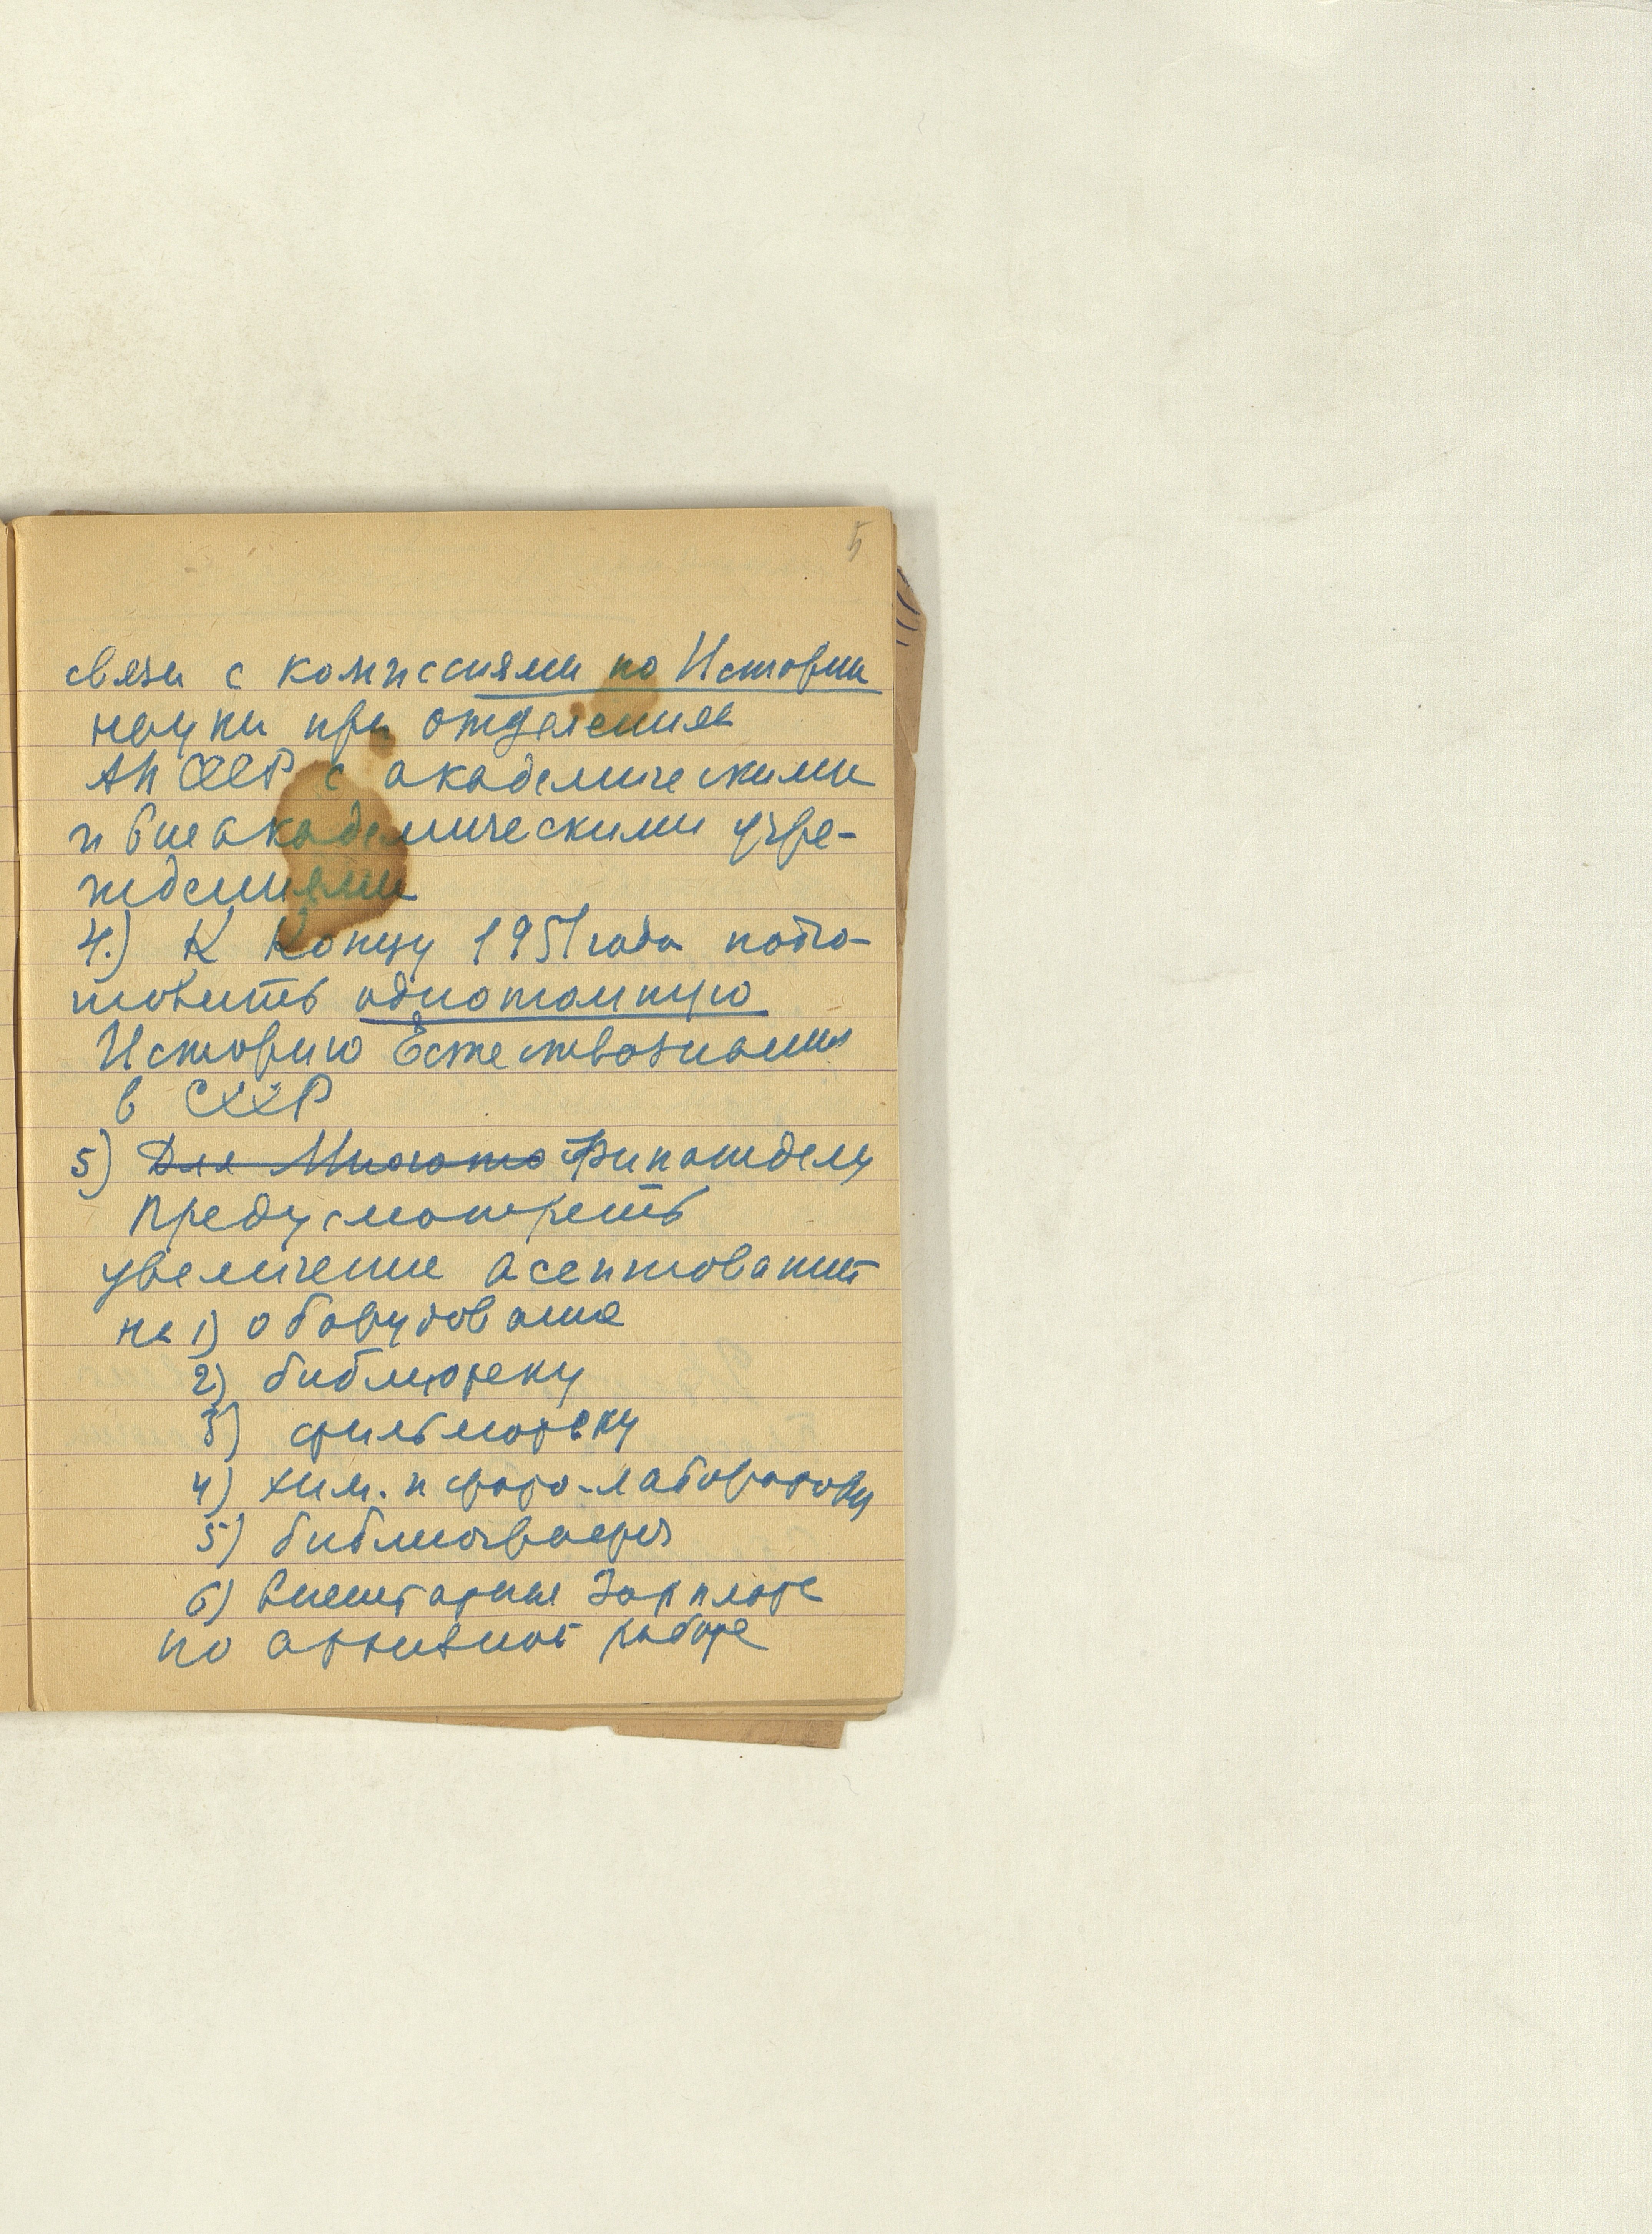 5
связи с комиссиями по Истории
науки при отделениях
АН СССР с академическими
и внеакадемическими учре-
ждениями
4.) К Концу 1951 года подго-
товить однотомную
Историю Естествознания
в СССР
5) Для Много Финотделу
предусмотреть
увеличение асситнований
на 1) оборудование
2) библиотеку
3) фильмотеку
4) хим. и фото-лабораторию
5) библиографа
6) внештатные Зарплате
по архивной работе